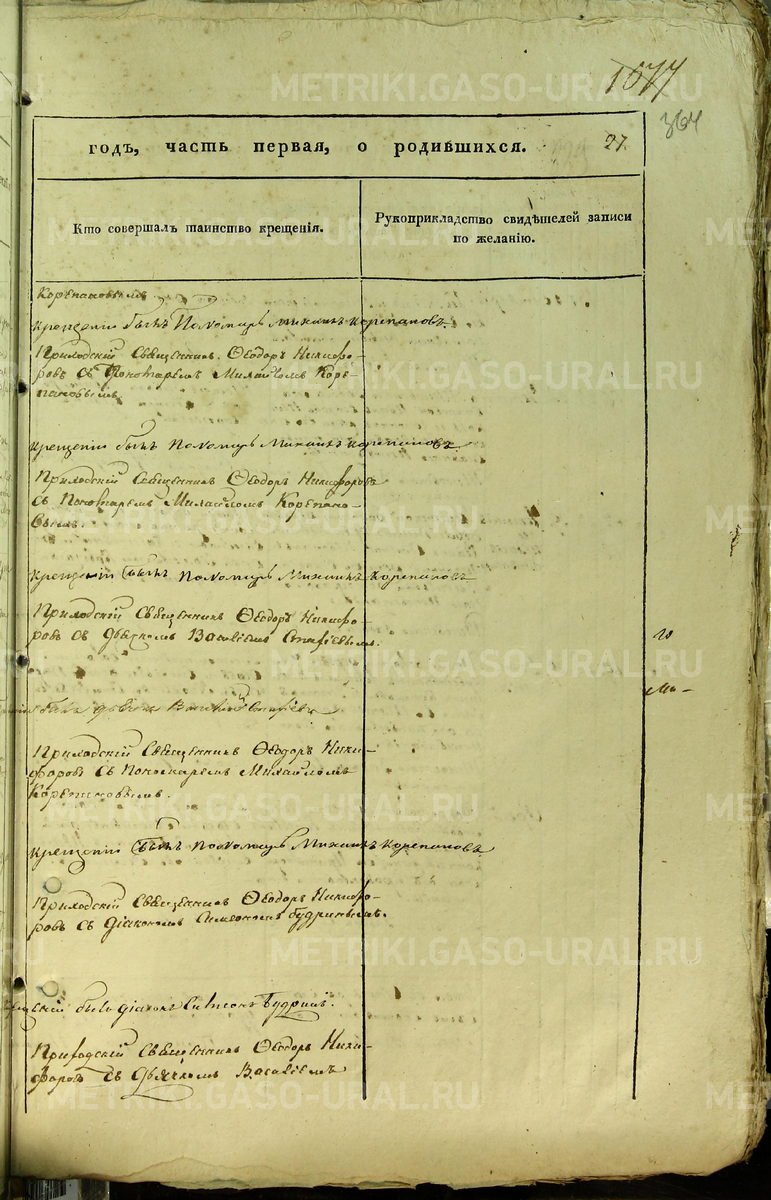 1077
364
годъ, часть первая, о родившихся. 27.
Кто совершалъ таинство крещенія.
Рукоприкладство свидѣтелей записи
по желанію.
Корѣпановымъ
крещеніи былъ Пономарь Михаилъ Корепановъ.
Приходскій Священникъ Ѳеодоръ Никифо-
ровъ съ Пономаремъ Михайломъ Корѣ-
пановымъ
крещеніи былъ Пономарь Михаилъ Корепановъ.
Приходскій Священникъ Ѳеодоръ Никифоровъ
съ Пономаремъ Михайломъ Корѣпано-
вымъ.
крещеніи былъ Пономарь Михаилъ Корепановъ
Приходскій Священникъ Ѳеодоръ Никифо-
ровъ съ Дьячкомъ Василіемъ
былъ дьячекъ Василій
Приходскій Священникъ Ѳеодоръ Ники-
форовъ съ Пономаремъ Михайломъ
Корѣпановымъ.
крещеніи былъ Пономарь Михаилъ Корепановъ
Приходскій Священникъ Ѳеодоръ Никифо-
ровъ съ Діакономъ Симеономъ Будринымъ.
былъ діаконъ Симеонъ Будринъ.
Приходскій Священникъ Ѳеодоръ Ники-
форовъ съ Дьячкомъ Василіемъ
METRIKI.GASO-URAL.RU